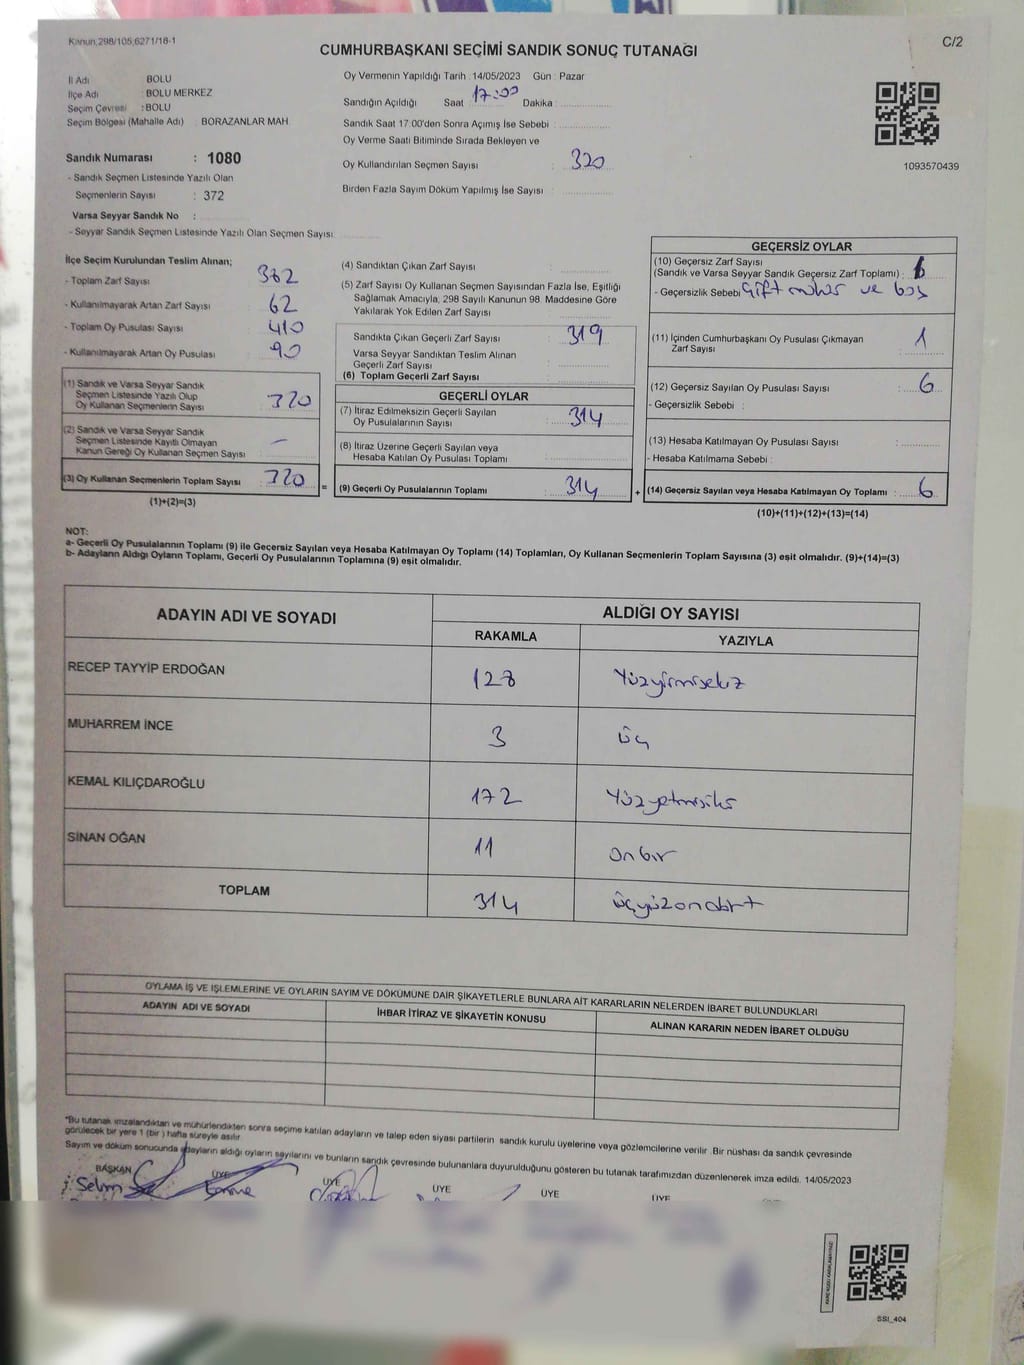 Kanun,298/105,6271/18-1
C/2
CUMHURBAŞKANI SEÇİMİ SANDIK SONUÇ TUTANAĞI
İl Adı BOLU
İlçe Adı : BOLU MERKEZ
Seçim Çevresi : BOLU
Seçim Bölgesi (Mahalle Adı) : BORAZANLAR MAH.
Sandık Numarası : 1080
- Sandık Seçmen Listesinde Yazılı Olan
Seçmenlerin Sayısı : 372
Varsa Seyyar Sandık No :
- Seyyar Sandık Seçmen Listesinde Yazılı Olan Seçmen Sayısı
Oy Vermenin Yapıldığı Tarih : 14/05/2023 Gün : Pazar
Sandığın Açıldığı Saat 17:00 Dakika :
Sandık Saat 17:00'den Sonra Açımış İse Sebebi :
Oy Verme Saati Bitiminde Sırada Bekleyen ve
Oy Kullandırılan Seçmen Sayısı 320
Birden Fazla Sayım Döküm Yapılmış İse Sayısı :
1093570439
İlçe Seçim Kurulundan Teslim Alınan;
- Toplam Zarf Sayısı 382
- Kullanılmayarak Artan Zarf Sayısı 62
- Toplam Oy Pusulası Sayısı 410
- Kullanılmayarak Artan Oy Pusulası 90
(1) Sandık ve Varsa Seyyar Sandık
Seçmen Listesinde Yazılı Olup
Oy Kullanan Seçmenlerin Sayısı 320
(2) Sandık ve Varsa Seyyar Sandık
Seçmen Listesinde Kayıtlı Olmayan
Kanun Gereği Oy Kullanan Seçmen Sayısı -
(3) Oy Kullanan Seçmenlerin Toplam Sayısı 320 =
(1)+(2)=(3)
(4) Sandıktan Çıkan Zarf Sayısı
(5) Zarf Sayısı Oy Kullanan Seçmen Sayısından Fazla İse, Eşitliği
Sağlamak Amacıyla, 298 Sayılı Kanunun 98. Maddesine Göre
Yakılarak Yok Edilen Zarf Sayısı
Sandıkta Çıkan Geçerli Zarf Sayısı 319
Varsa Seyyar Sandıktan Teslim Alınan
Geçerli Zarf Sayısı
(6) Toplam Geçerli Zarf Sayısı
GEÇERLİ OYLAR
(7) İtiraz Edilmeksizin Geçerli Sayılan
Oy Pusulalarının Sayısı 314
(8) İtiraz Üzerine Geçerli Sayılan veya
Hesaba Katılan Oy Pusulası Toplamı
(9) Geçerli Oy Pusulalarının Toplamı : 314 +
GEÇERSİZ OYLAR
(10) Geçersiz Zarf Sayısı
(Sandık ve Varsa Seyyar Sandık Geçersiz Zarf Toplamı) :
- Geçersizlik Sebebi Çift mühür ve boş
(11) İçinden Cumhurbaşkanı Oy Pusulası Çıkmayan
Zarf Sayısı 1
(12) Geçersiz Sayılan Oy Pusulası Sayısı : 6
- Geçersizlik Sebebi :
(13) Hesaba Katılmayan Oy Pusulası Sayısı
- Hesaba Katılmama Sebebi :
(14) Geçersiz Sayılan veya Hesaba Katılmayan Oy Toplamı : 6
(10)+(11)+(12)+(13)=(14)
NOT:
a- Geçerli Oy Pusulalarının Toplamı (9) ile Geçersiz Sayılan veya Hesaba Katılmayan Oy Toplamı (14) Toplamları, Oy Kullanan Seçmenlerin Toplam Sayısına (3) eşit olmalıdır. (9)+(14)=(3)
b- Adayların Aldığı Oyların Toplamı, Geçerli Oy Pusulalarının Toplamına (9) eşit olmalıdır.
ADAYIN ADI VE SOYADI
ALDIĞI OY SAYISI
RAKAMLA YAZIYLA
RECEP TAYYİP ERDOĞAN 128 Yüzyirmisekiz
MUHARREM İNCE 3 üç
KEMAL KILIÇDAROĞLU 172 Yüzyetmişiki
SİNAN OĞAN 11 onbir
TOPLAM 314 üçyüzondört
OYLAMA İŞ VE İŞLEMLERİNE VE OYLARIN SAYIM VE DÖKÜMÜNE DAİR ŞİKAYETLERLE BUNLARA AİT KARARLARIN NELERDEN İBARET BULUNDUKLARI
ADAYIN ADI VE SOYADI
İHBAR İTİRAZ VE ŞİKAYETİN KONUSU
ALINAN KARARIN NEDEN İBARET OLDUĞU
*Bu tutanak imzalandıktan ve mühürlendikten sonra seçime katılan adayların ve talep eden siyasi partilerin sandık kurulu üyelerine veya gözlemcilerine verilir. Bir nüshası da sandık çevresinde
görülecek bir yere 1 (bir) hafta süreyle asılır.
Sayım ve döküm sonucunda adayların aldığı oyların sayılarını ve bunların sandık çevresinde bulunanlara duyurulduğunu gösteren bu tutanak tarafımızdan düzenlenerek imza edildi. 14/05/2023
BAŞKAN ÜYE ÜYE ÜYE ÜYE ÜYE
Selim
SSI_404